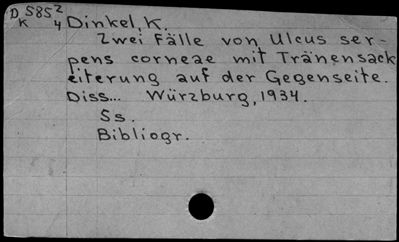 D 585 2
K 4 Dinkel, K.
Zwei Fälle von Ulcus ser-
pens corneae mit Tränensack
eiterung auf der Gegenseite.
Diss... Würzburg, 1934.
5s.
Bibliogr.